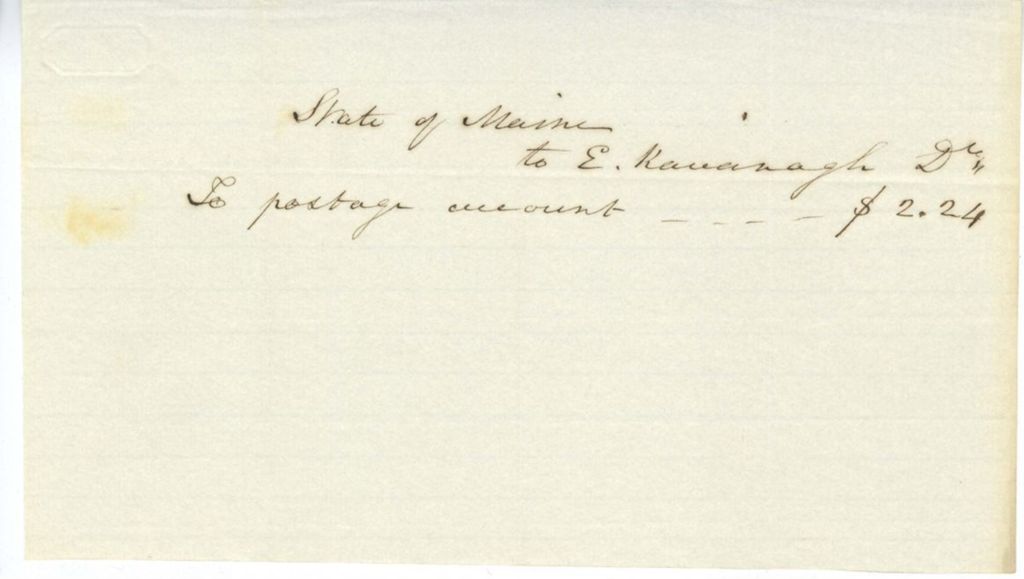 State of Maine
to E. Kavanagh Dr,,
To postage account - - - - $ 2.24